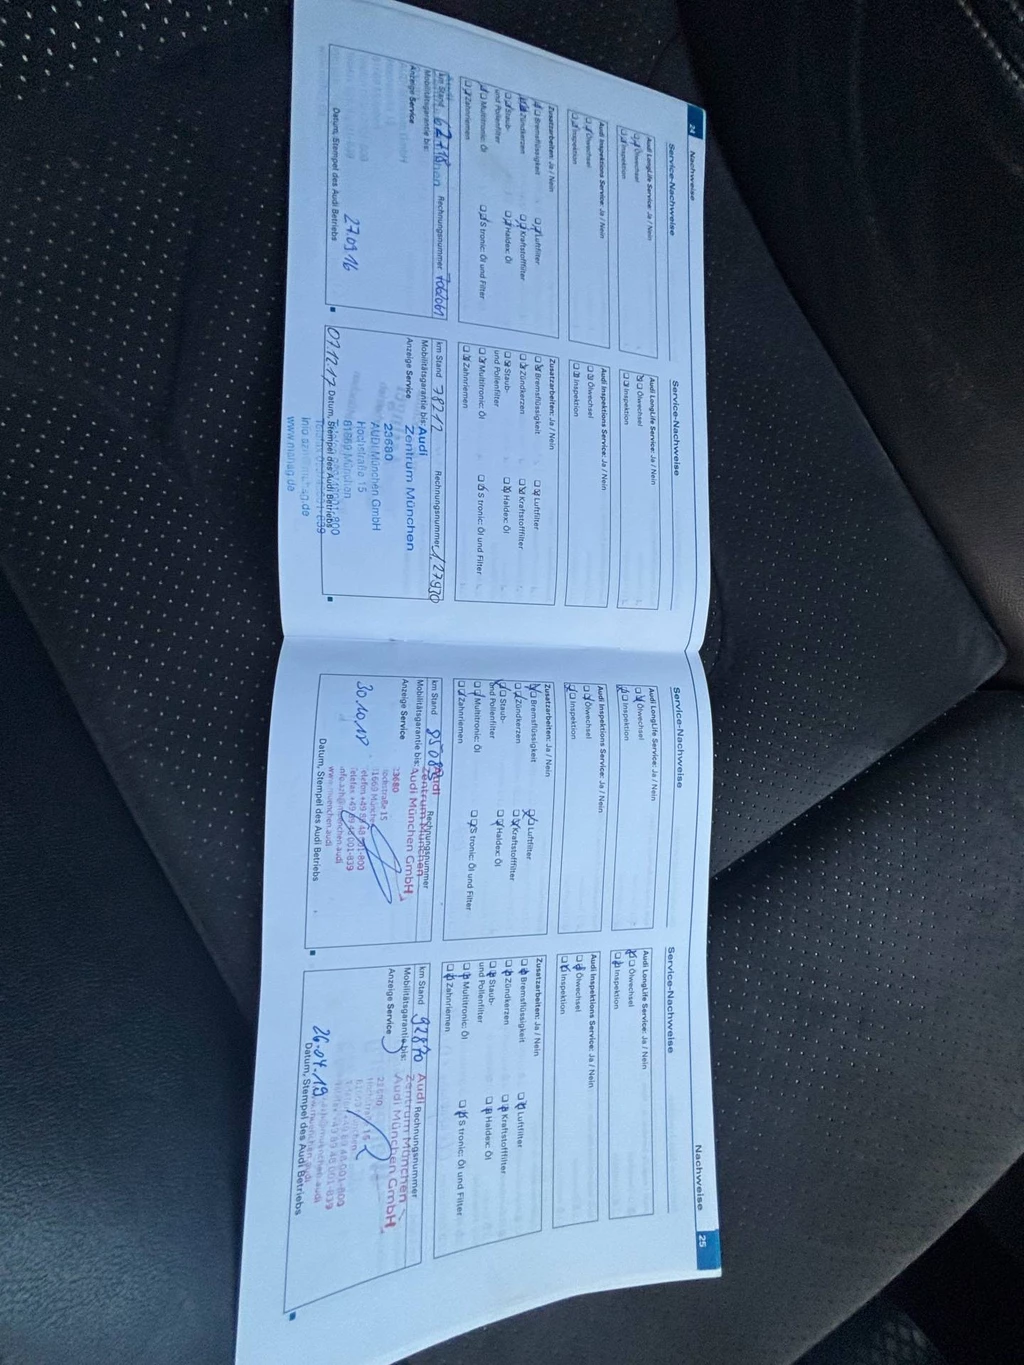 24 Nachweise
Service-Nachweise
Audi LongLife Service: Ja / Nein
Ölwechsel
Inspektion
Audi Inspektions Service: Ja / Nein
Ölwechsel
Inspektion
Zusatzarbeiten: Ja / Nein
Bremsflüssigkeit Luftfilter
Zündkerzen Kraftstofffilter
Staub- Haldex: Öl
und Pollenfilter
Multitronic: Öl S tronic: Öl und Filter
Zahnriemen
km Stand 62718 Rechnungsnummer
Mobilitätsgarantie bis:
Anzeige Service
27.09.16
Datum, Stempel des Audi Betriebs
Service-Nachweise
Audi LongLife Service: Ja / Nein
Ölwechsel
Inspektion
Audi Inspektions Service: Ja / Nein
Ölwechsel
Inspektion
Zusatzarbeiten: Ja / Nein
Bremsflüssigkeit Luftfilter
Zündkerzen Kraftstofffilter
Staub- Haldex: Öl
und Pollenfilter
Multitronic: Öl S tronic: Öl und Filter
Zahnriemen
km Stand 78212 Rechnungsnummer 127930
Mobilitätsgarantie bis: Audi
Anzeige Service Zentrum München
23680
AUDI München GmbH
Hochstraße 15
81669 München
07.12.17 Datum, Stempel des Audi Betriebs
www.mahag.de
Service-Nachweise
Audi LongLife Service: Ja / Nein
Ölwechsel
Inspektion
Audi Inspektions Service: Ja / Nein
Ölwechsel
Inspektion
Zusatzarbeiten: Ja / Nein
Bremsflüssigkeit Luftfilter
Zündkerzen Kraftstofffilter
Staub- Haldex: Öl
und Pollenfilter
Multitronic: Öl S tronic: Öl und Filter
Zahnriemen
km Stand 85083 Audi Rechnungsnummer
Mobilitätsgarantie bis: Zentrum München
Anzeige Service Audi München GmbH
23680
Hochstraße 15
81669 München
30.10.18 Telefon +49 89 48 001-800
Telefax +49 89 48 001-839
www.muenchen.audi
Datum, Stempel des Audi Betriebs
Nachweise 25
Service-Nachweise
Audi LongLife Service: Ja / Nein
Ölwechsel
Inspektion
Audi Inspektions Service: Ja / Nein
Ölwechsel
Inspektion
Zusatzarbeiten: Ja / Nein
Bremsflüssigkeit Luftfilter
Zündkerzen Kraftstofffilter
Staub- Haldex: Öl
und Pollenfilter
Multitronic: Öl S tronic: Öl und Filter
Zahnriemen
km Stand 92870 Audi Rechnungsnummer
Mobilitätsgarantie bis: Zentrum München
Anzeige Service Audi München GmbH
26.04.19
Datum, Stempel des Audi Betriebs